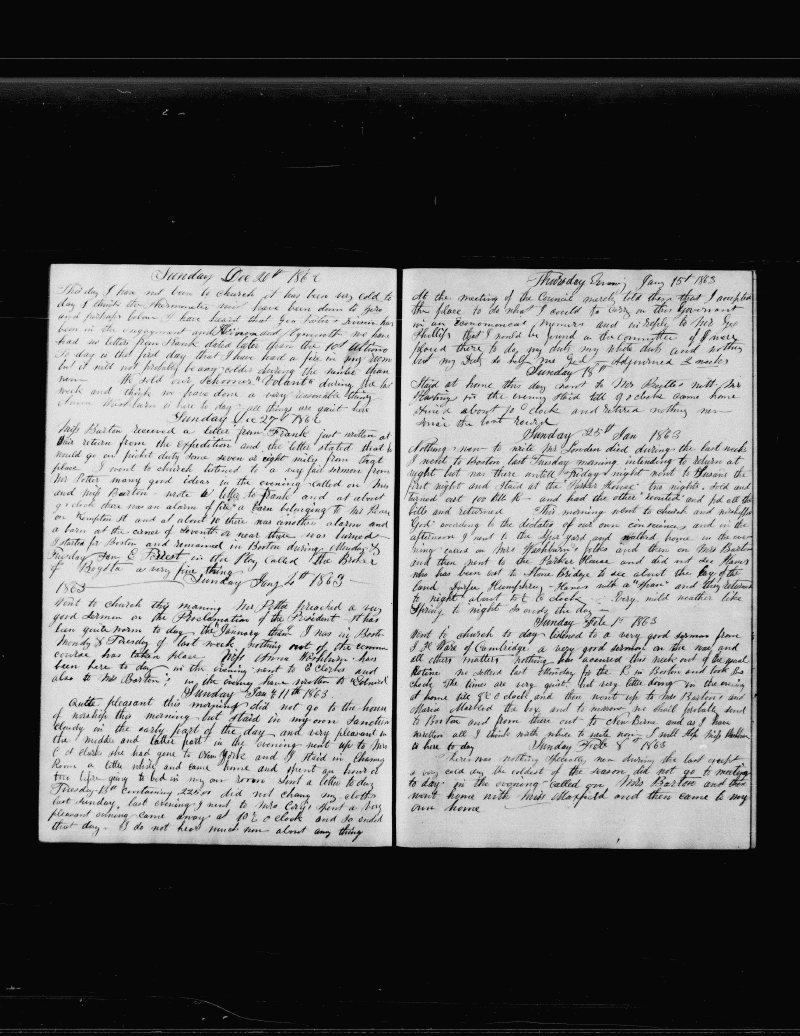 Sunday Dec 20th 1862
This day I have not been to church it has been very cold to
day I think the thermometer must have been down to zero
and perhaps below I have heard that Gen Foster's Division has
been in the engagement and Kinston and Plymouth we have
had no letter from Frank dated later than the 10st Ultimo
To day is the first day that I have had a fire in my room
but it will not probably be any colder during the winter than
now We sold our Schooner "Volant" during the last
week and think we have done a very favorable thing
Anna Washburn is here to day - all things are quiet here
Sunday Dec 27th 1862
Miss Barton received a letter from Frank just written at
their return from the Expedition and the letter stated that he
would go on picket duty some seven or eight miles from that
place I went to church listened to a very fair sermon from
Mr Potter many good ideas in the evening called on Mrs
and Miss Barton - wrote a letter to Frank and at about
9 o clock there was an alarm of fire a barn belonging to Mr
on Kempton St and at about 10 there was another alarm and
a barn at the corner of Seventh or near there was burned
I started for Boston and remained in Boston during Monday &
Tuesday Jan E in the Play called the Broker
of Bogota a very fine thing
Sunday Jany 4th 1863
1863
Went to church this morning Mr Potter preached a very
good sermon on the Proclamation of the President It has
been quite warm to day the "January thaw" I was in Boston
Monday & Tuesday of last week nothing out of the common
course has taken place Miss Anna Washburn has
been here to day in the evening went to E Clarks and
also to Mrs Barton's in the evening have written to Edward
Sunday Jan 11th 1863
Quite pleasant this morning did not go to the house
of worship this morning but staid in my own Sanctum
cloudy in the early part of the day and very pleasant in
the middle and latter part in the evening went up to Mrs
E Clark she had gone to New York and I staid in Channy
Room a little while and came home and spent an hour or
two before going to bed in my own room sent a letter to day
Tuesday 13th containing did not change my clothes
last Sunday. last evening I went to Mrs Cary's spent a very
pleasant evening came away at 10½ o clock and so ended
that day. I do not hear much new about any thing
Thursday Evening Jany 15st 1863
At the meeting of the Council merely told them that I accepted
the place to do what I could to carry on this Government
in an economical manner and in reply to Mr Geo
Phillips that I would be found on the committee if I were
placed there to do my duty my whole duty and nothing
but my duty so help me God - Adjourned 2 weeks
Sunday 18th
Staid at home this day went to Mrs with Mr
Hastings in the evening Staid till 9 o clock came home
about 10 o clock and retired nothing new
since the last record
Sunday 25th Jan 1863
Nothing new to write Mr London died during the last week
I went to Boston last Tuesday morning intending to return at
night but was there until Friday night went to Susans the
first night and Staid at the "Parker House" two nights. sold and
turned out 100 bbls - and had the other and paid all the
bills and returned This morning went to church and worshipped
God according to the dictates of our own conscience, and in the
afternoon I went to the yard and walked home in the eve-
ning called on Mrs Washburn's folks and then on Mrs Barton
and then went to the Parker House and did not see Hawes
who has been out to Stone Bridge to see about the Hay of the
land Humphrey - Hawes with a "Span" and they returned
to night about 6½ o clock - Very mild weather like
Spring to night So ends the day
Sunday Feb 1st 1863
Went to church to day listened to a very good sermon from
J F Ware of Cambridge a very good sermon on the war, and
all others matters nothing has accured this week out of the usual
Routine we settled last Thursday for the in Boston and took the
check the times are very quiet but very little doing in the evening
at home till 8½ o clock and then went up to Mrs Barton's and
Maria Marked the box, and to morrow we shall probably send
to Boston and from there out to New Berne and as I have
written all I think worth while to write now I will stop Miss Washburn
is here to day
Sunday Feb 8th 1863
There was nothing specially new during the last except
a very cold day the coldest of the season did not go to meeting
to day in the evening called on Mrs Barton and then
went home with Miss Maxfield and then came to my
own home